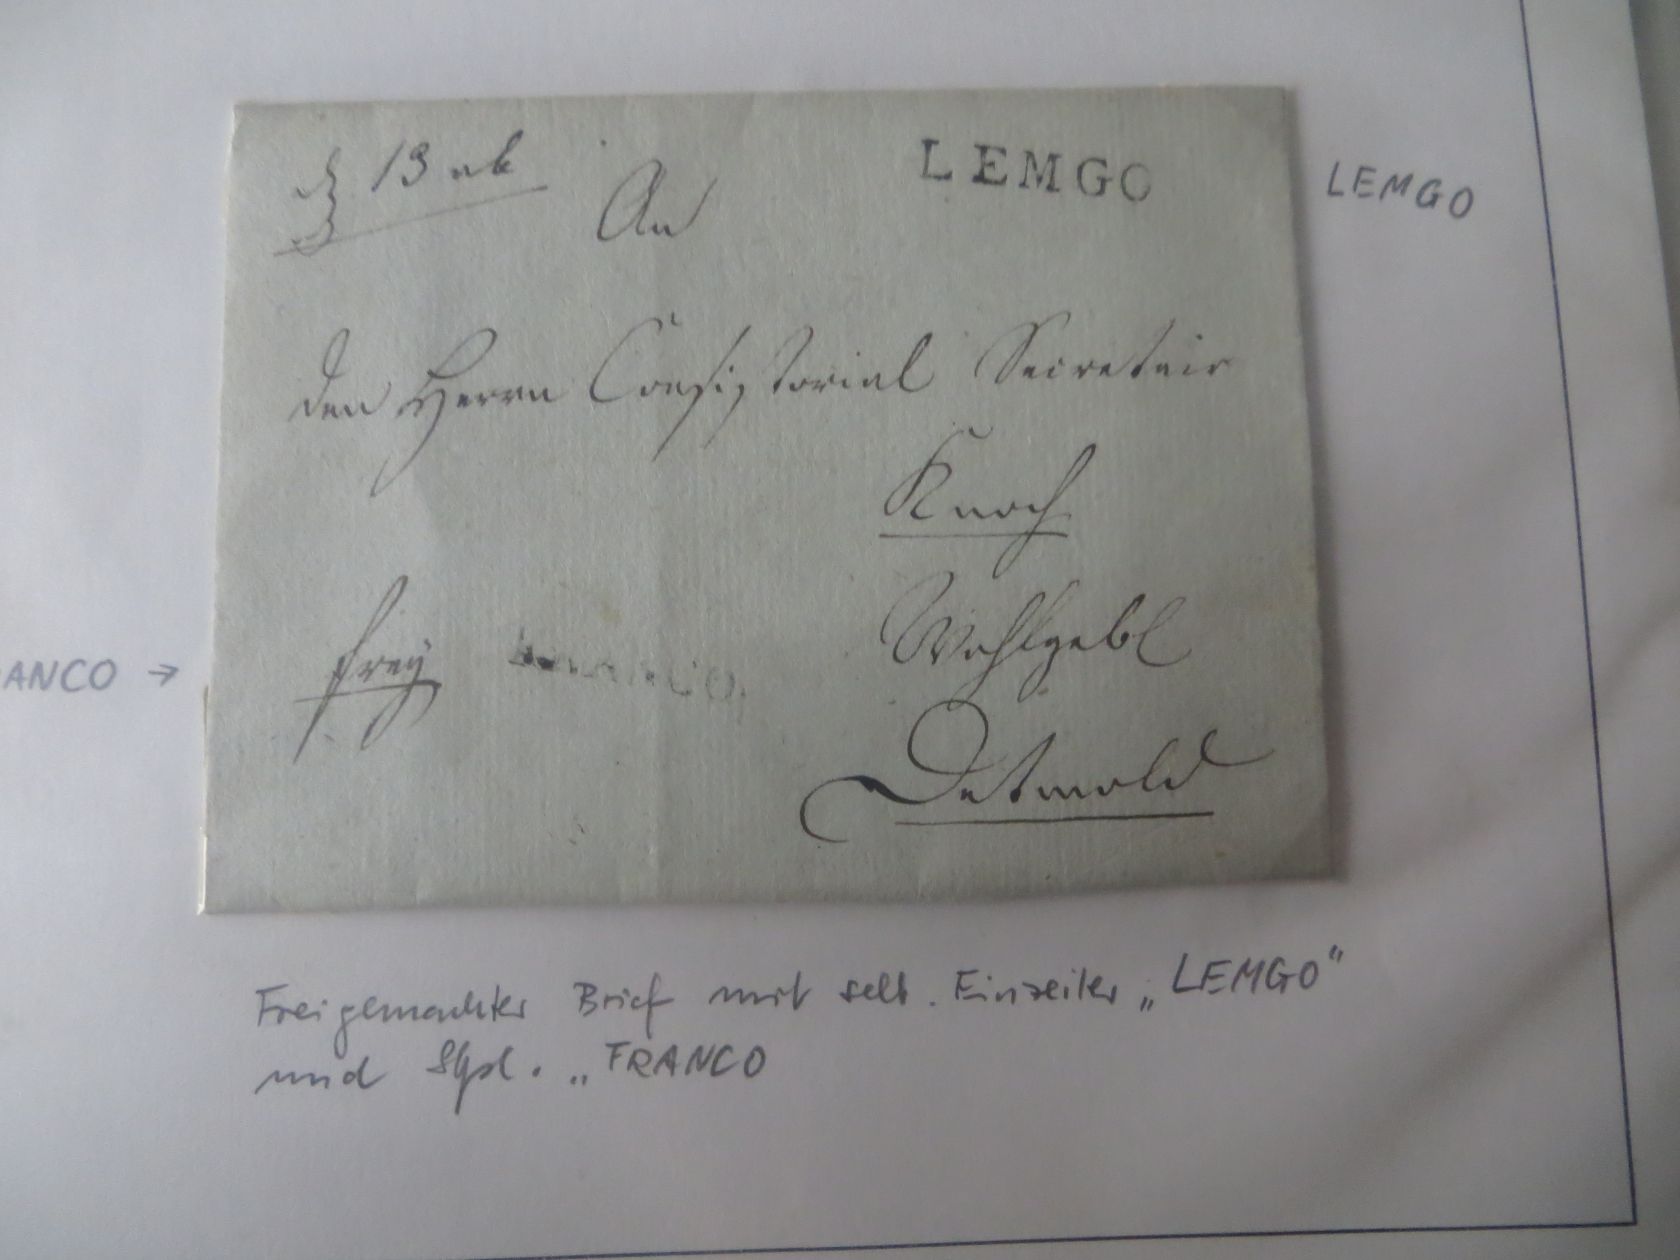 13
An
LEMGO
LEMGO
den Herrn Consistorial Secretair
Knoch
frey
FRANCO
Wohlgebl
ANCO →
Detmold
Freigemachter Brief mit selt. Einzeiler „LEMGO"
und Stpl. „FRANCO